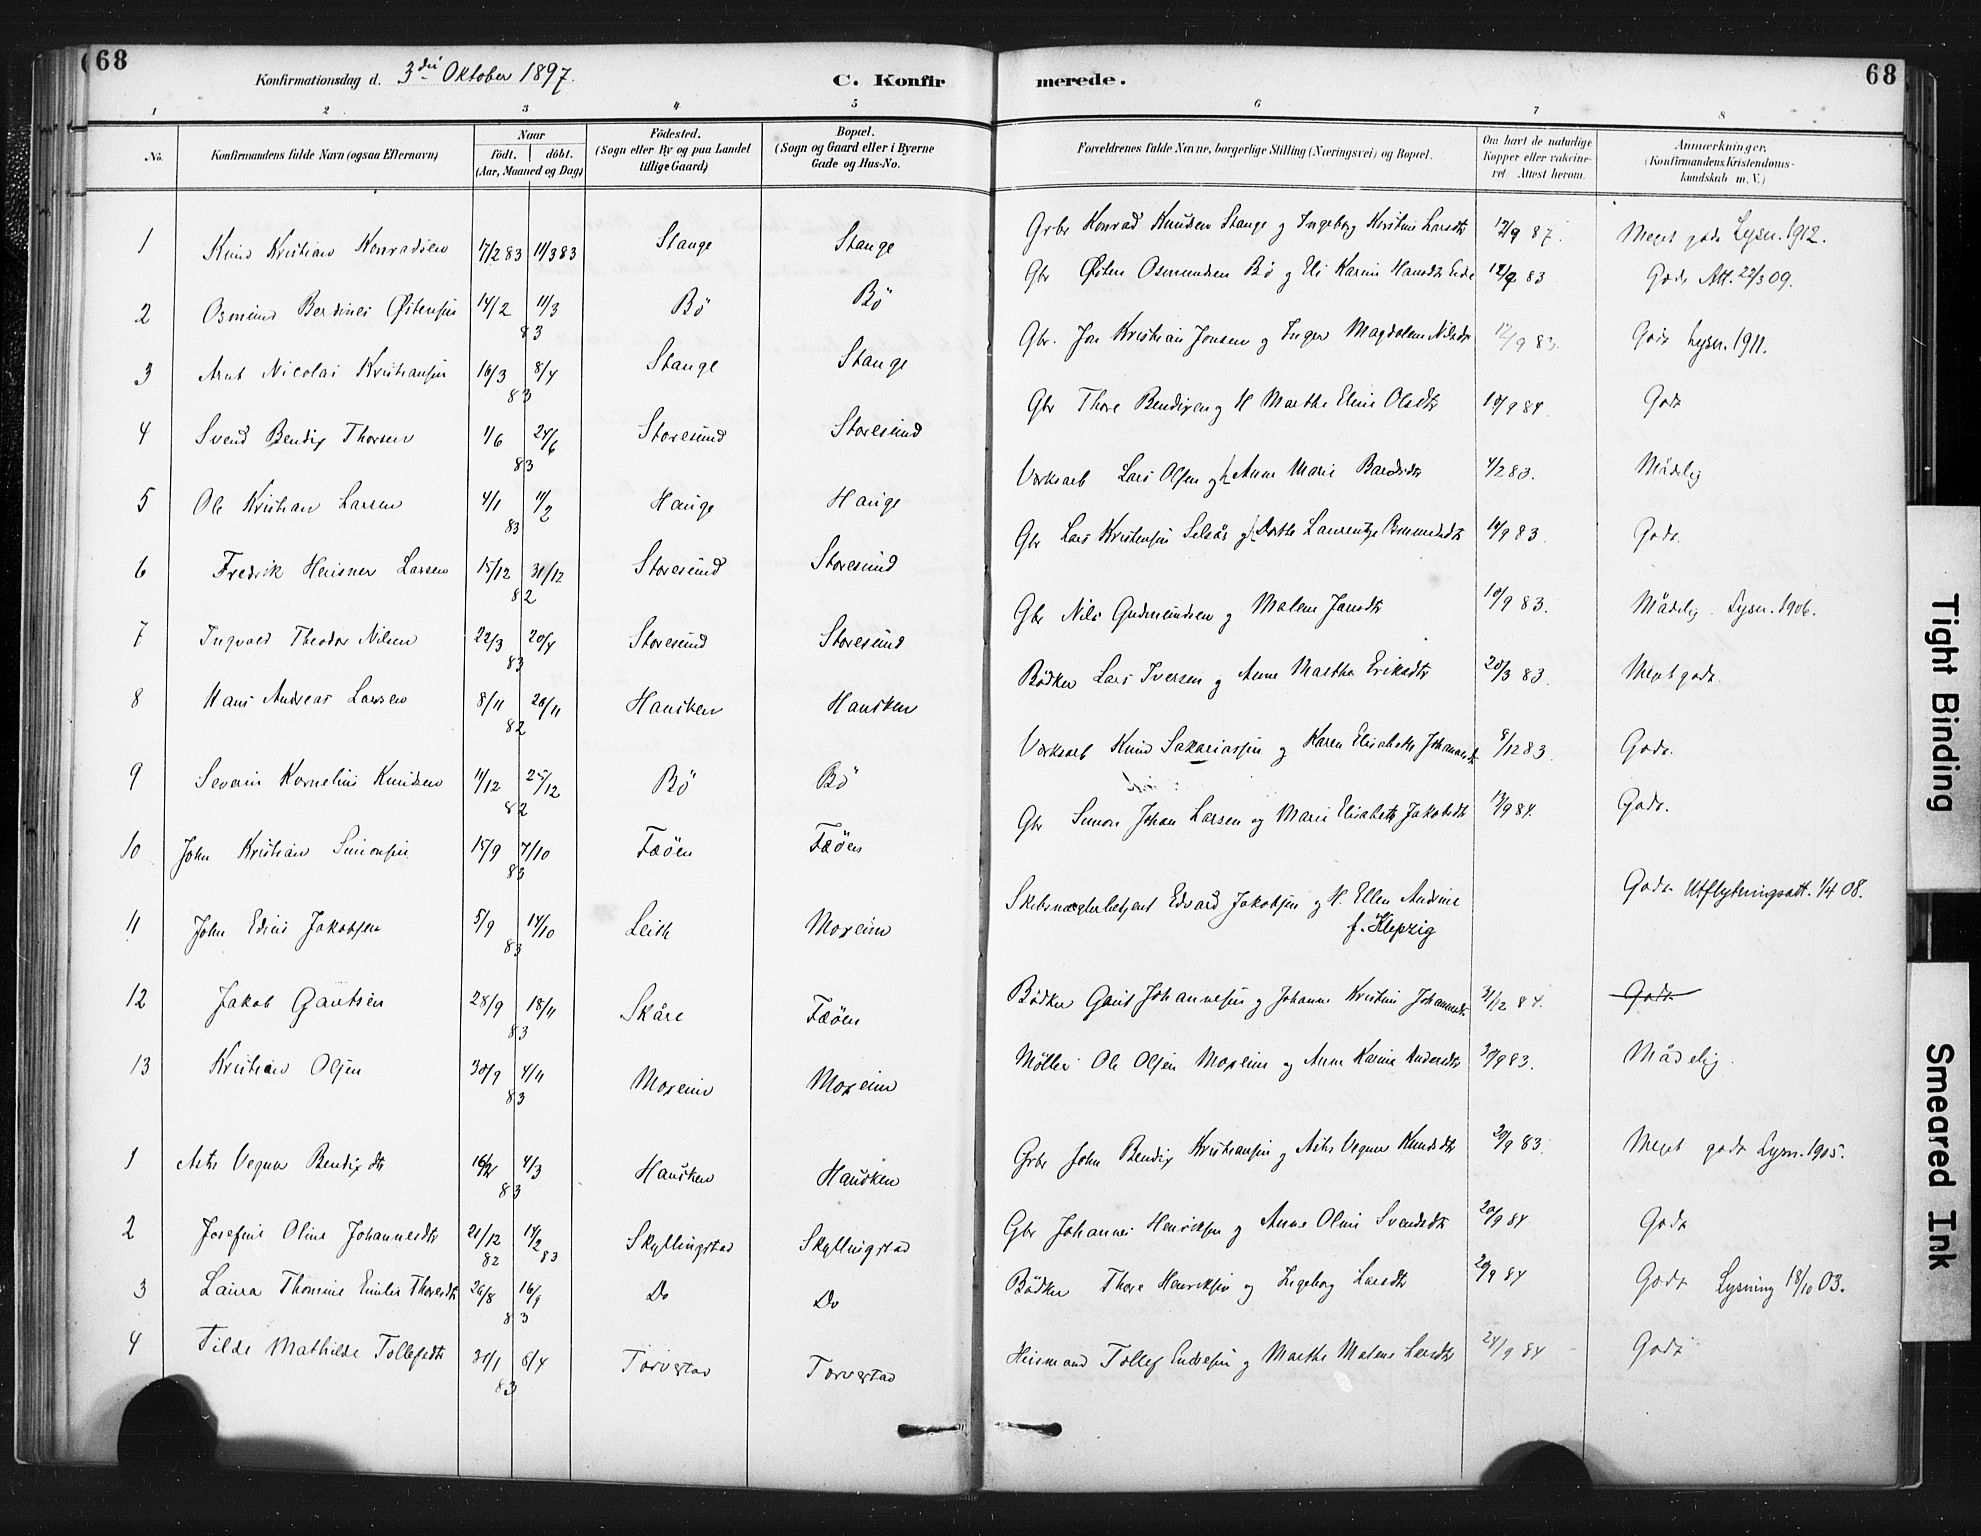 68
Konfirmationsdag d. 3die Oktober 1897.
C. Konfirmerede.
68
1 2 3 4 5 6 7 8
No.
Konfirmandens fulde Navn (ogsaa Efternavn)
Naar
födt. | döbt.
(Aar, Maaned og Dag)
Födested.
(Sogn eller By og paa Landet
tillige Gaard)
Bopæl.
(Sogn og Gaard eller i Byerne
Gade og Hus-No.
Forældrenes fulde Navne, borgerlige Stilling (Næringsvei) og Bopæl.
Om havt de naturlige
Kopper eller vakcine-
ret. Attest herom.
Anmærkninger.
(Konfirmandens Kristendoms-
kundskab m. V.)
1 Knud Kristian Konradsen 17/2 83 11/3 83 Stange Stange Grbr Konrad Knudsen Stange g Ingeborg Kirstine Larsdtr 12/9 87. Meget godt Lysn. 1912.
2 Osmund Berdines Østensen 14/2 11/3 83 Bö Bö Gbr Østen Osmundsen Bö g Karine Hansdtr Eide 12/9 83 Godt Att. 22/3 09.
3 Arnt Nicolai Kristiansen 16/3 8/4 83 Stange Stange Gbr. Jon Kristian Jonsen g Inger Magdalene Nilsdtr 12/9 83. Godt Lysn. 1911.
4 Svend Bendix Thorsen 1/6 24/6 83 Storesund Storesund Gbr Thore Bendixen g H Marthe Eline Olsdtr 10/9 84. Godt
5 Ole Kristian Larsen 4/1 11/2 83 Hauge Hauge Værksarb Lars Olsen g Anne Marie Bardsdtr 4/2 83. Mådelig
6 Fredrik Meisner Larsen 15/12 31/12 82 Storesund Storesund Gbr Lars Kristensen Selsås g Dorthe Laurentze 14/9 83. Godt.
7 Ingvald Theodor Nilsen 22/3 20/4 83 Storesund Storesund Gbr Nils Gudmundsen g Malene Jansdtr 10/9 83. Mådelig Lysn. 1906.
8 Hans Andreas Larsen 8/11 26/11 82 Hausken Hausken Bödker Lars Iversen g Anne Marthe Eriksdtr 20/3 83. Meget godt.
9 Severin Kornelius Knudsen 11/12 25/12 82 Bö Bö Værksarb Knud Sakariassen g Karen Elisabeth Johannesdt 8/12 83. Godt.
10 John Kristian Simonsen 15/9 7/10 83 Fæöen Fæöen Gbr Simon Johan Larsen og Marie Elisabeth Jakobsdtr 13/9 84. Godt.
11 John Edin Jakobsen 5/9 14/10 83 Leith Moxeim Skibsmæglerbetjent Edvard Jakobsen g H. Ellen Andrine
f. Klepzig Godt Utflytningsatt. 1/4 08.
12 Jakob Gautsen 28/9 18/11 83 Skåre Fæöen Bödker Gaut Johannesen g Johanne Kristine Johannesdtr 31/12 84. Godt
13 Kristian Olsen 30/9 4/11 83 Moxeim Moxeim Möller Ole Olsen Moxeim og Anne Karine Andersdtr 20/9 83. Mådelig
1 Asta Vegner Bendixdtr 4/3 83 Hausken Hausken Grbr John Bendix Kristiansen g Asta Vegner Knudsdtr 20/9 83. Meget godt Lysn. 1905.
2 Josefine Oline Johannesdtr 21/12 82 14/2 83 Skyllingstad Skyllingstad Gbr Johannes Henriksen g Anne Oline Svendsdtr 20/9 84. Godt
3 Laura Thomine Emilie Thoresdtr 26/8 16/9 83 Do Do Bödker Thore Henriksen og Ingeborg Larsdtr 20/9 84 Godt Lysning 18/10 03.
4 Tilde Mathilde Tollefsdtr 31/1 8/4 83 Torvestad Torvestad Huusmand Tollef Endresen g Marthe Malene Larsdtr 24/9 84 Godt
Tight Binding
Smeared Ink